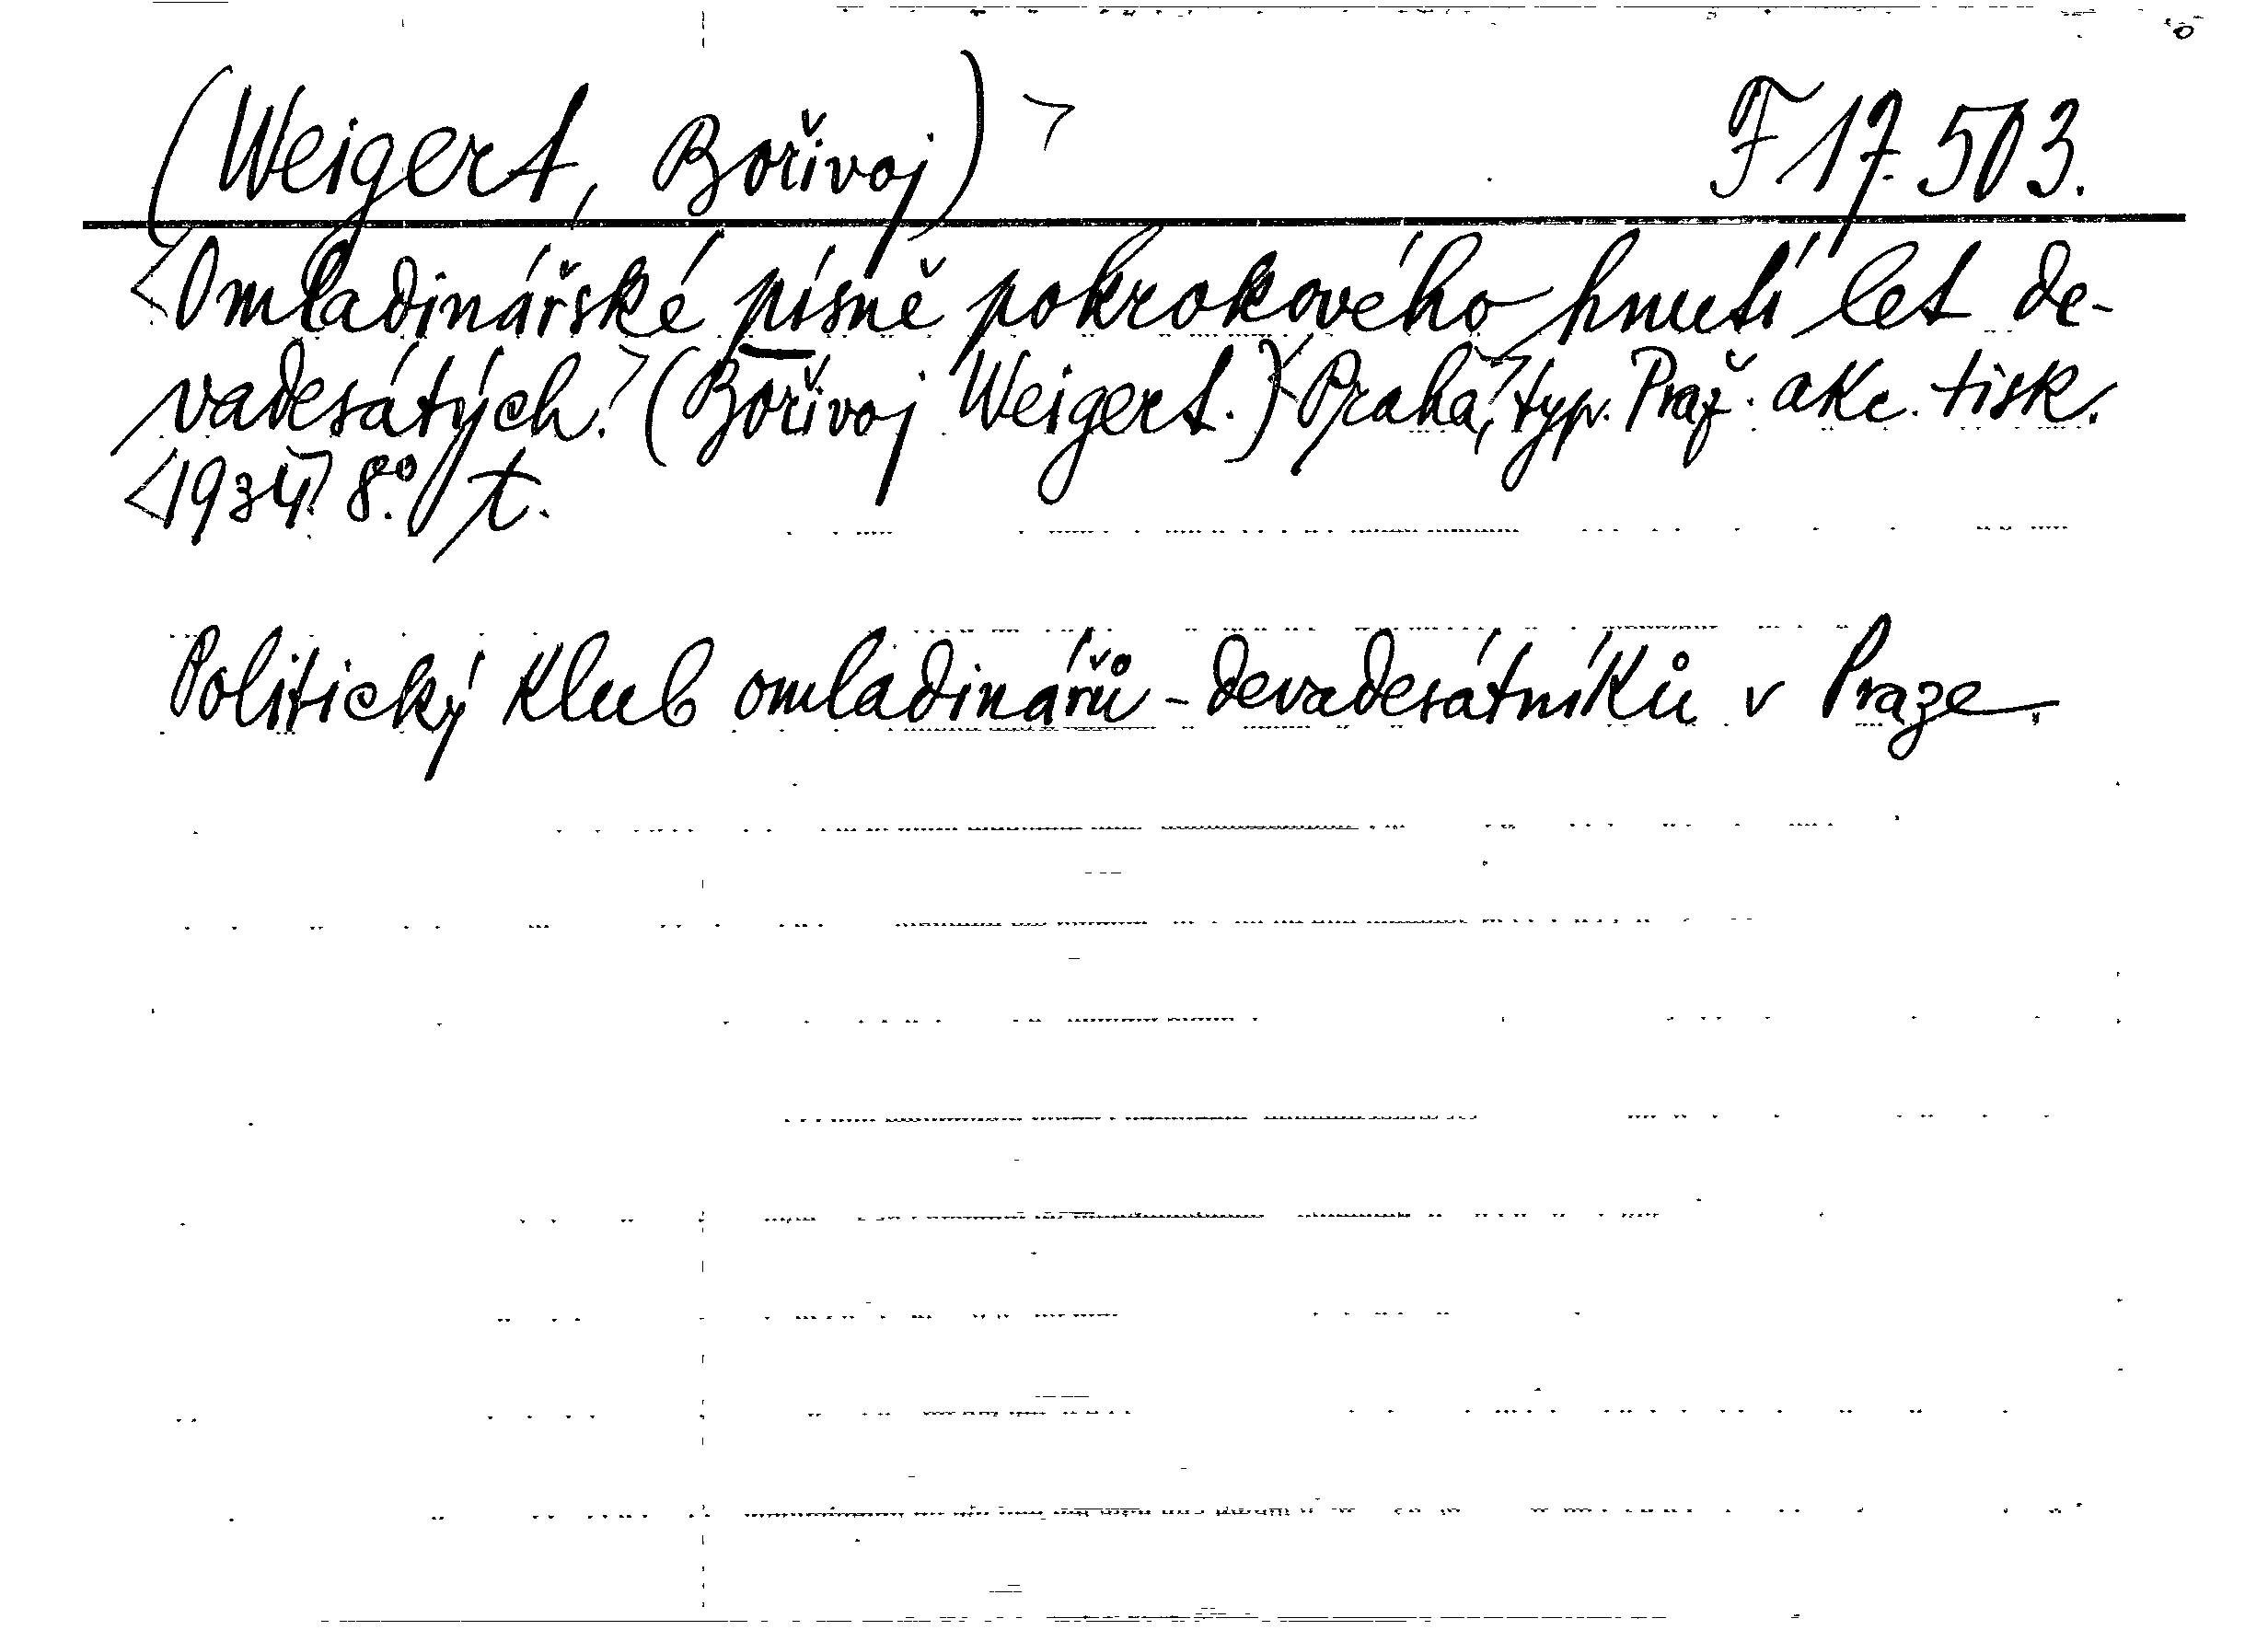 (Weigert, Bořivoj) F 17.503.
Omladinářské písně pokrokového hnutí let de-
vadesátých. (Bořivoj Weigert.) Praha, typ. Praž. akc. tisk.
1934. 8° t.
Politický klub omladinářů-devadesátníků v Praze.